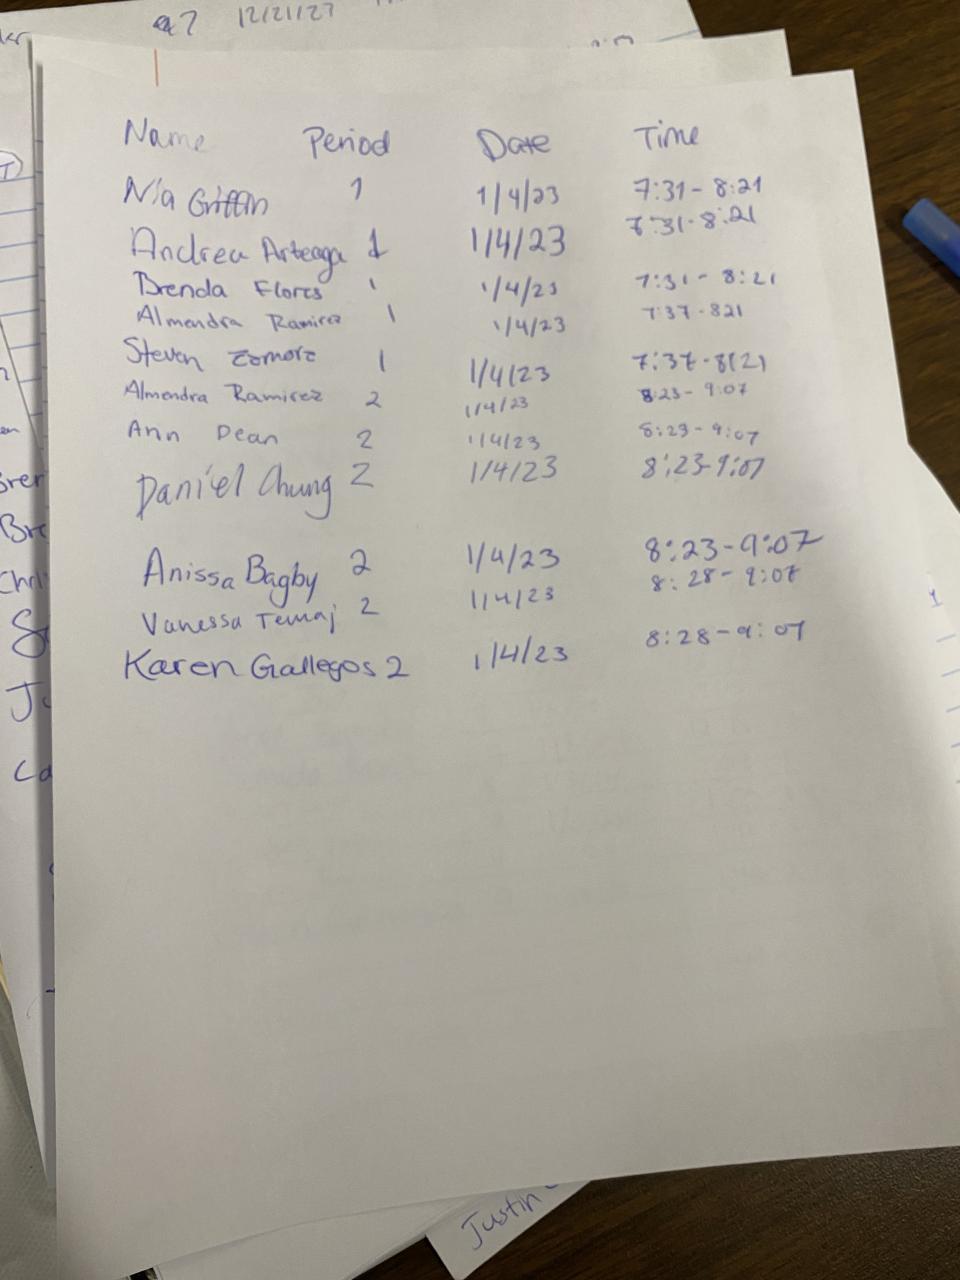 12/21/27
Name Period Date Time
Nia Griffin 1 1/4/23 7:31-8:21
Andrea Arteaga 1 1/4/23 7:31-8:21
Brenda Flores 1 1/4/23 7:31-8:21
Almendra Ramirez 1 1/4/23 7:37-821
Steven 1 1/4/23 7:37-8(21
Almendra Ramirez 2 1/4/23 8:23-9:07
Ann Dean 2 1/4/23 8:23-9:07
Daniel Chung 2 1/4/23 8:23-9:07
Anissa Bagby 2 1/4/23 8:23-9:07
Vanessa Temaj 2 1/4/23 8:28-9:07
Karen Gallegos 2 1/4/23 8:28-9:07
Justin